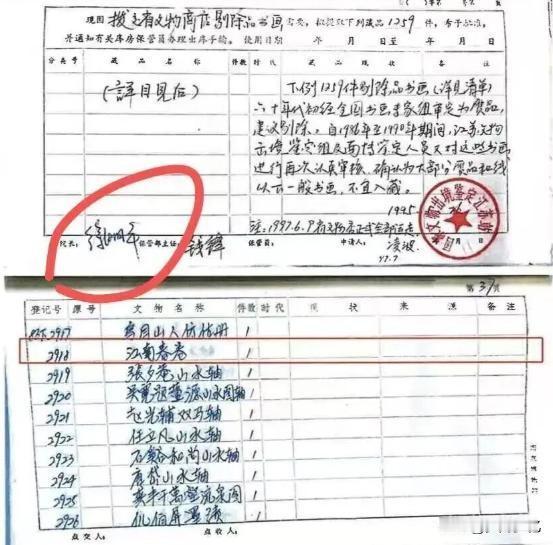 现因 拨交省文物商店剔除品书画 需要,拟提取下列藏品1259件,与予批准,
并通知有关库房保管员办理出库手续。使用日期 年 月 日至 年 月 日
分类号 藏品名称 件数 时代 藏品现状 备注
(詳目見后)
下列1259件剔除品书画(详见清单)
六十年代初经全国书画专家组审定为赝品,
建议剔除。自1986年至1990年期间,江苏文物
出境鉴定组及南博鉴定人员又对这些书画
进行再次认真审核,确认为大部分赝品和
以下一般书画,不宜入藏。
1995
院长: 徐湖平 保管部主任: 钱锋 保管员: 申请人: 凌波
97.7
注:1997.6.
第39页
登记号 原号 文物名称 件数 时代 现状 来源 备注
2917 山人仿 册 1
2918 江南春卷 1
2919 張夕庵山水轴 1
2920 山水图轴 1
2921 赵光辅双马轴 1
2922 任立凡山水轴 1
2923 石谿和尚山水轴 1
2924 唐岱山水轴 1
2925 流泉图 1
2926 1
点交人: 点收人: 年 月 日